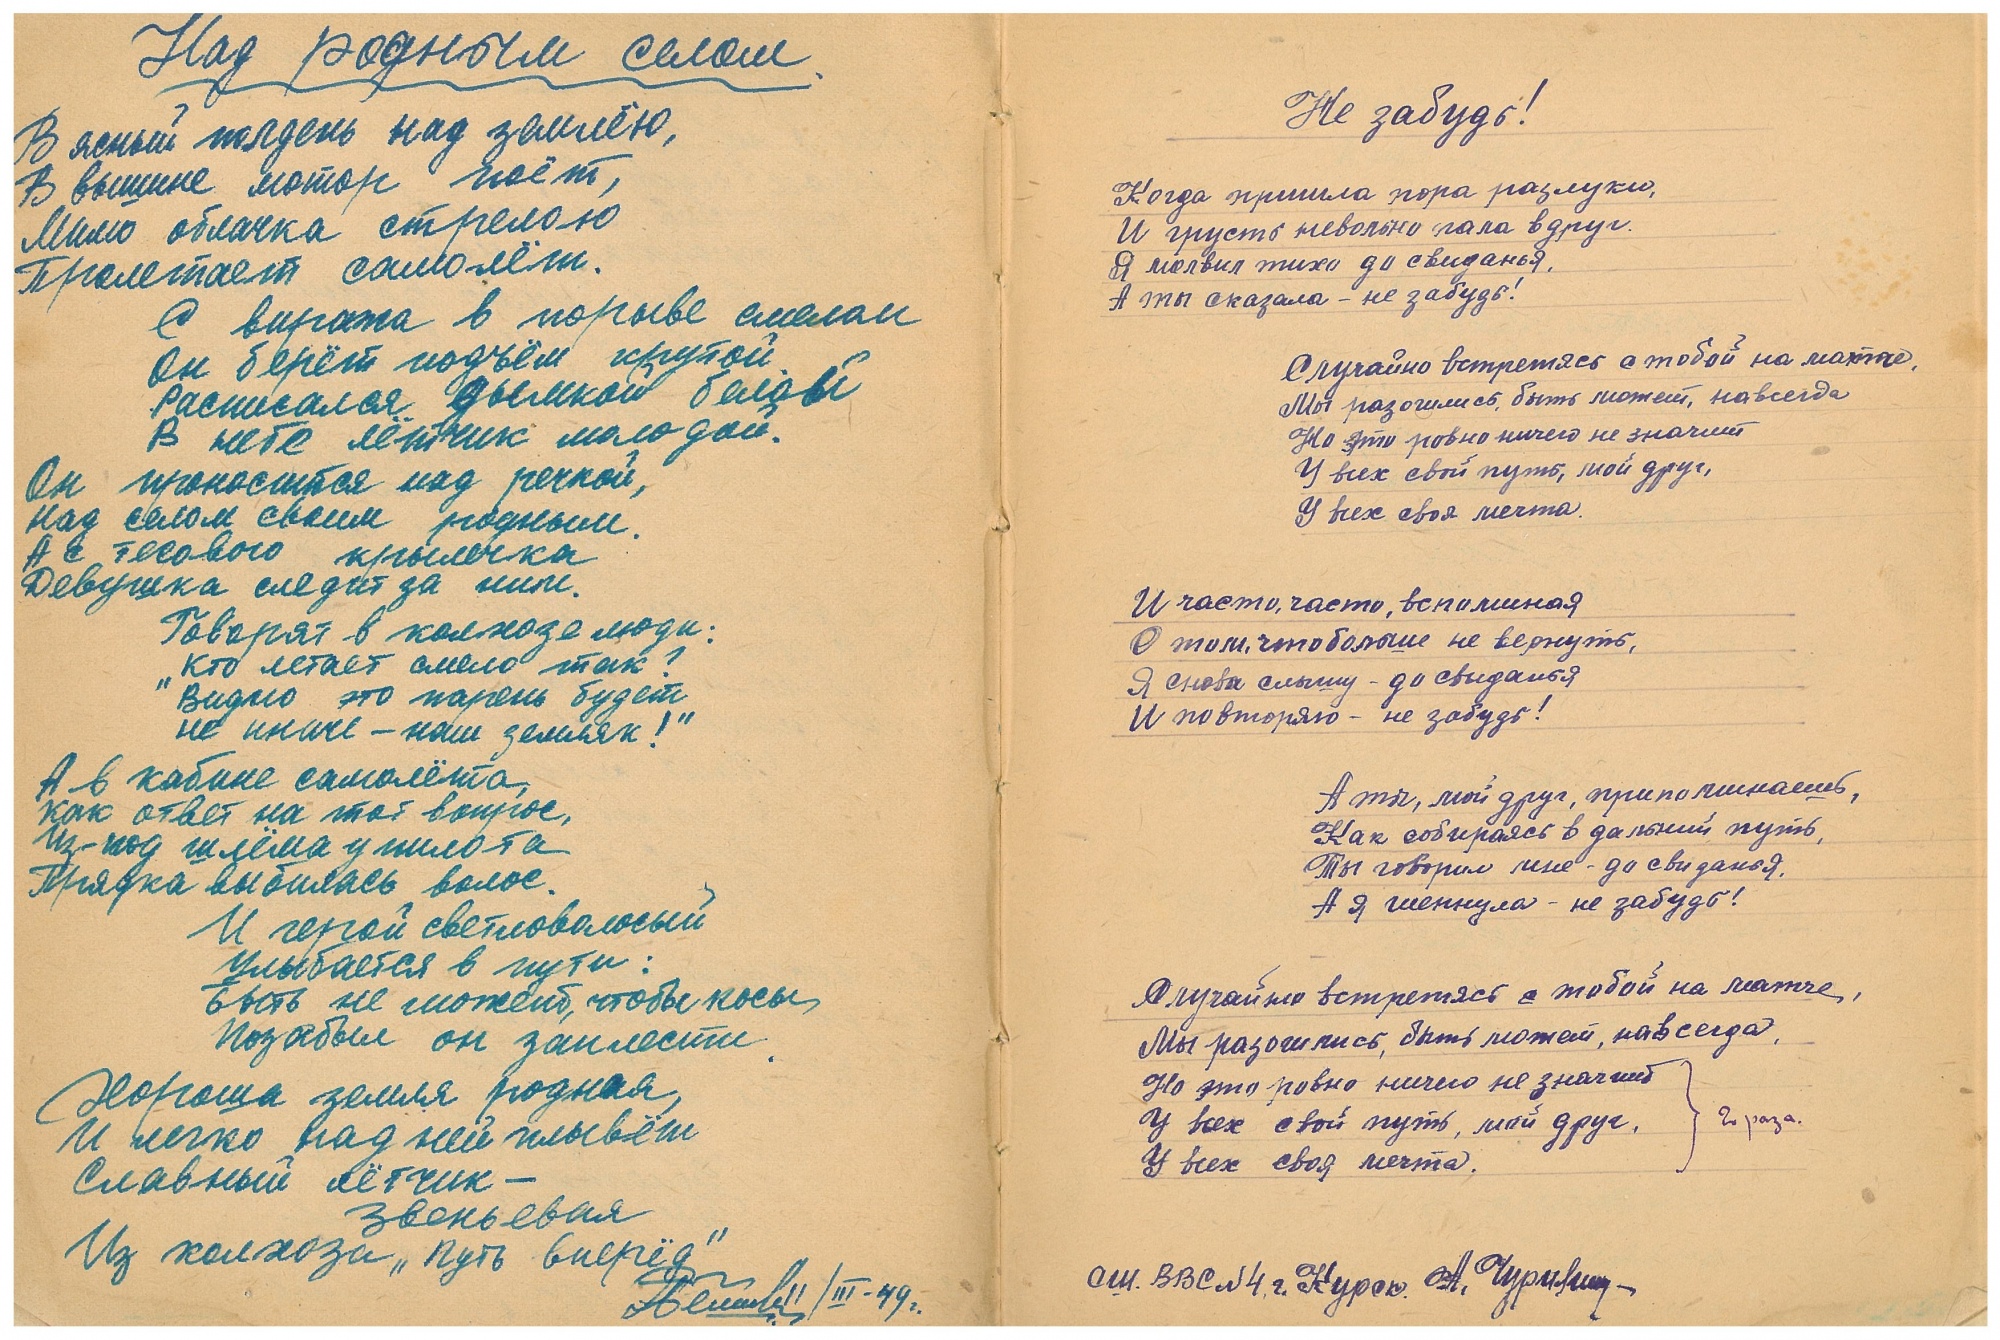 Над родным селом.
В ясный полдень над землёю,
В вышине мотор поёт,
Мимо облачка стрелою
Пролетает самолёт.
С виража в порыве смелом
Он берёт подъём крутой
Расписался дымкой белой
В небе лётчик молодой.
Он проносится над речкой,
Над селом своим родным.
А с тесового крылечка
Девушка следит за ним.
Говорят в колхозе люди:
„Кто летает смело так?
"Видно это парень будет
не иначе – наш земляк!"
А в кабине самолёта,
Как ответ на тот вопрос,
Из-под шлёма у пилота
Прядка выбилась волос.
И герой светловолосый
Улыбается в пути:
Быть не может, чтобы косы
Позабыл он заплести.
Хороша земля родная,
И легко над ней плывёт
Славный лётчик –
Звеньевая
Из колхоза „Путь вперёд"
/III-49г.
Не забудь!
Когда пришла пора разлуки,
И грусть невольно пала вдруг.
Я молвил тихо до свиданья,
А ты сказала – не забудь!
Случайно встретясь с тобой на матче,
Мы разошлись, быть может, навсегда
Но это ровно ничего не значит
У всех свой путь, мой друг,
У всех своя мечта.
И часто, часто, вспоминая
О том, что больше не вернуть,
Я снова слышу – до свыданья
И повторяю – не забудь!
А ты, мой друг, припоминаешь,
Как собираясь в дальний путь,
Ты говорил мне – до свиданья,
А я шепнула – не забудь!
Случайно встретясь с тобой на матче,
Мы разошлись, быть может, навсегда,
Но это ровно ничего не значит
У всех свой путь, мой друг,
2 раза.
У всех своя мечта.
СШ. ВВС №4, г. Курск. А.